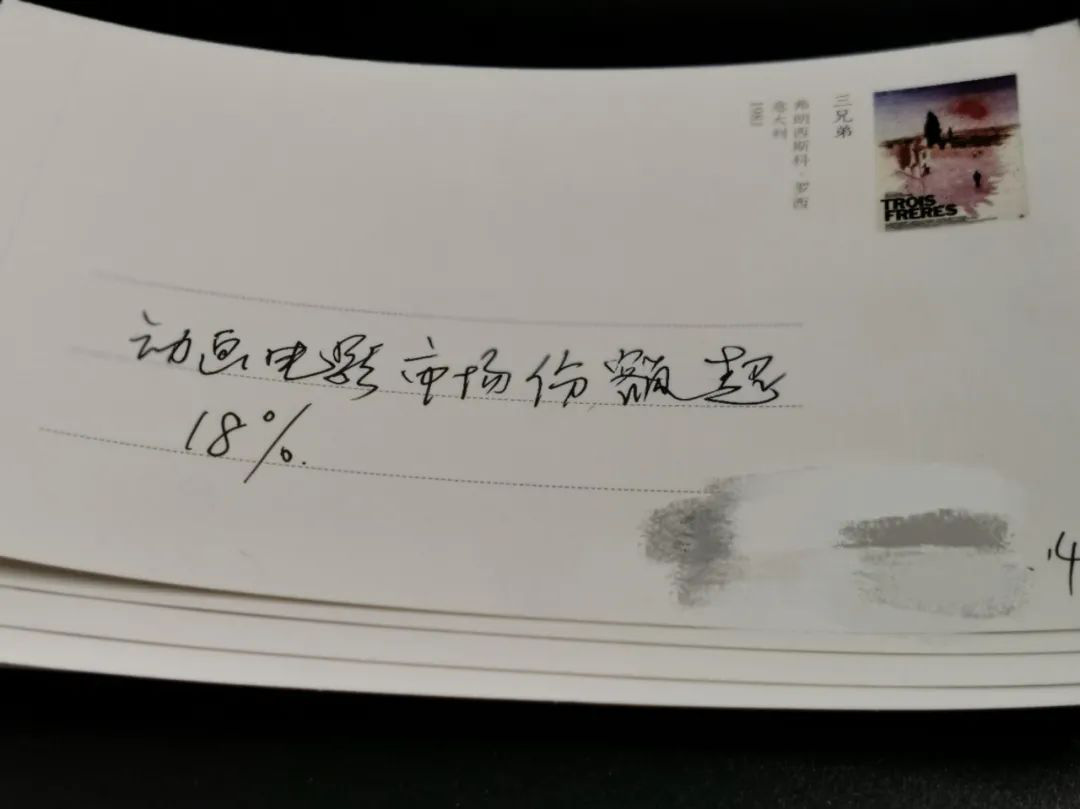 三兄弟
弗朗西斯科·罗西
意大利
1981
TROIS
FRERES
动画电影市场份额超
18%.
14